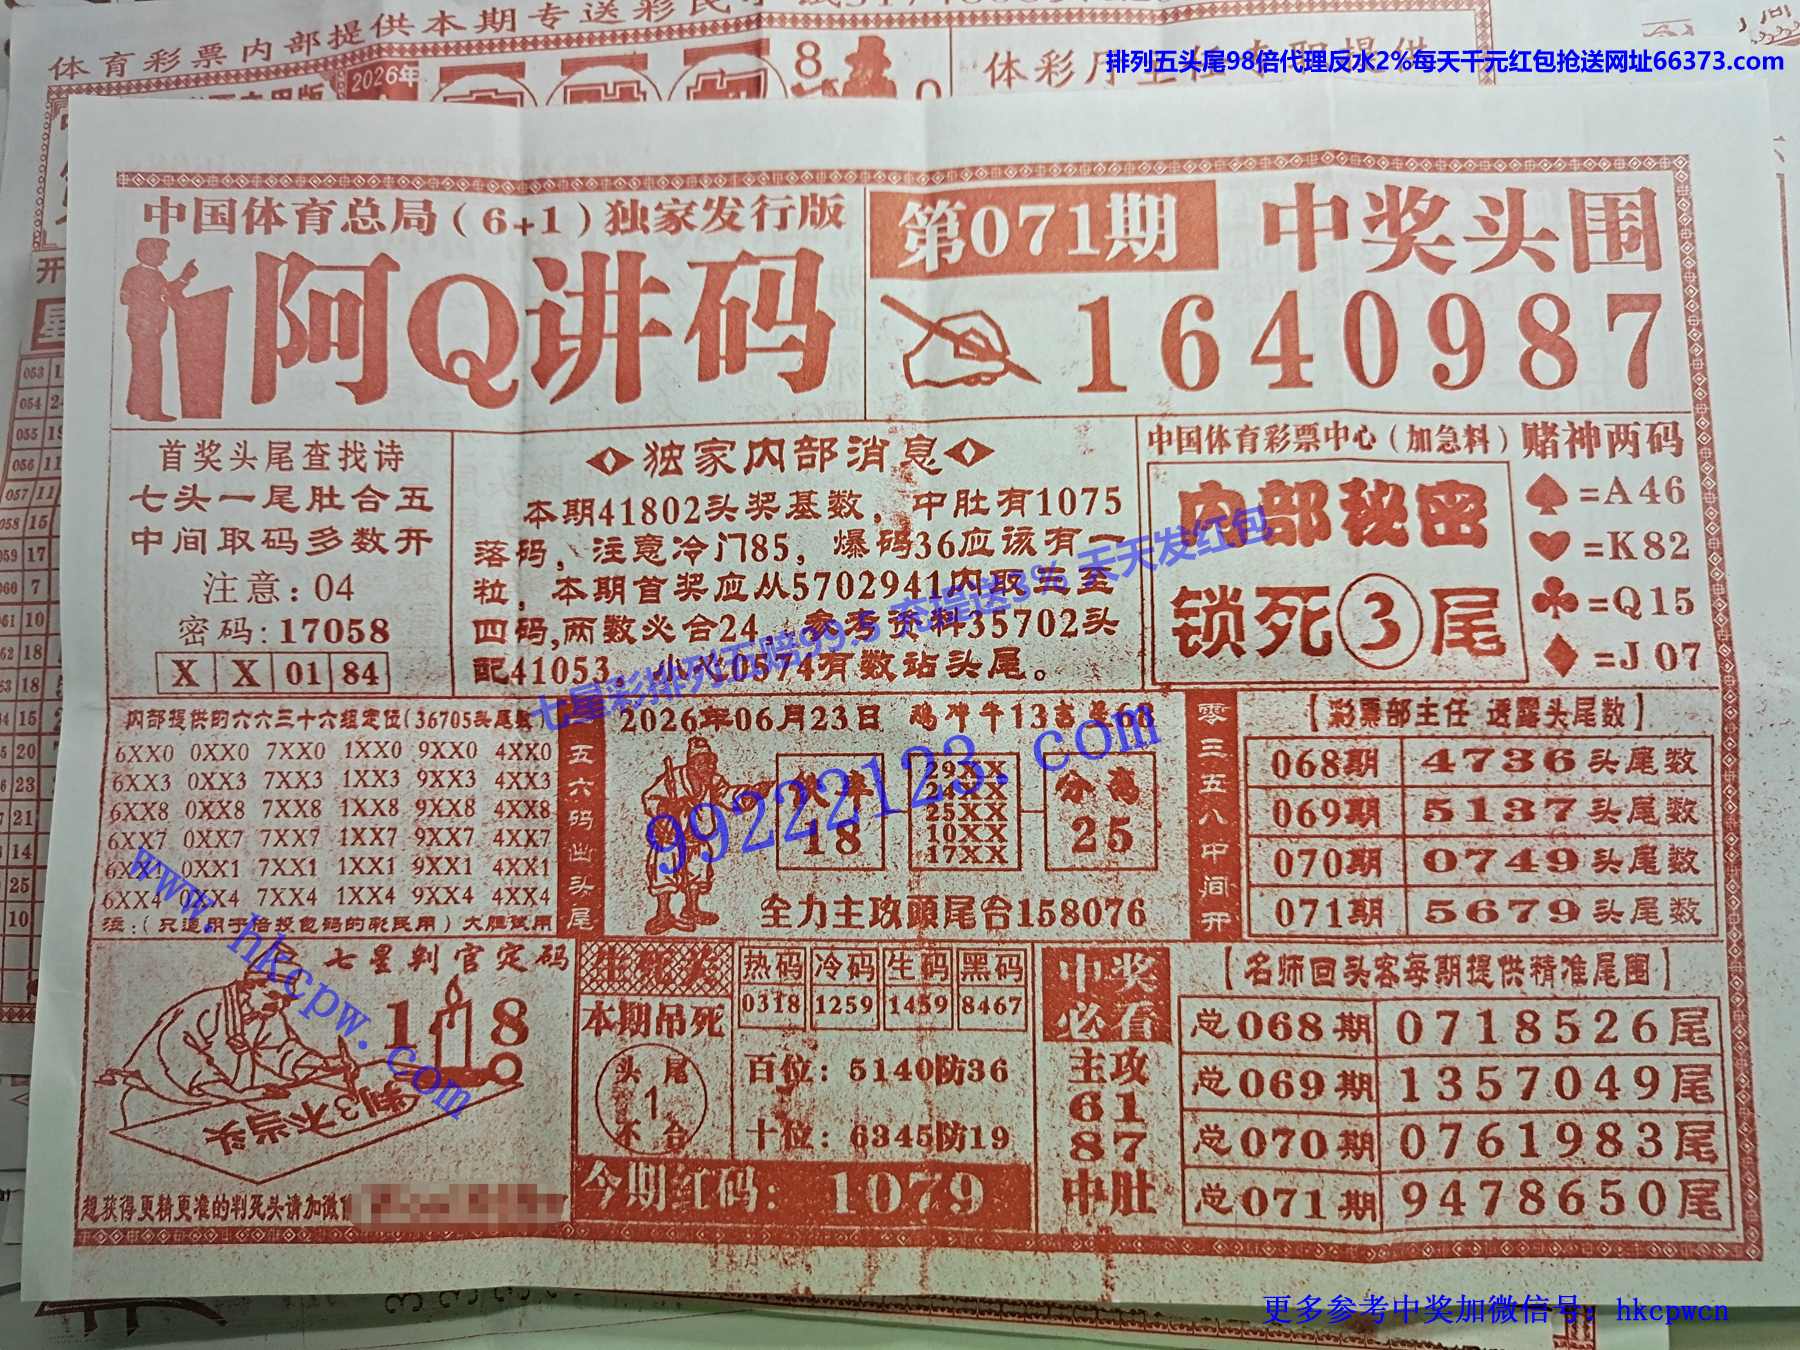 体育彩票内部提供本期专送彩民
排列五头尾98倍代理反水2%每天千元红包抢送网址66373.com
2026年
8
中国体育总局(6+1)独家发行版
阿Q讲码
第071期
中奖头围
1640987
首奖头尾查找诗
七头一尾肚合五
中间取码多数开
注意:04
密码:17058
X X 01 84
独家内部消息
本期41802头奖基数,中肚有1075
落码,注意冷门85,爆码36应该有一
粒,本期首奖应从5702941内取三至
四码,两数必合24,参考资料35702头
配41053,小心0574有数站头尾。
中国体育彩票中心(加急料)
内部秘密
锁死③尾
赌神两码
♠=A46
♥=K82
♣=Q15
♦=J07
七星彩排列五赔99.5 充提送3% 天天发红包
内部提供的六六三十六组定位(36705头尾数)
6XX0 0XX0 7XX0 1XX0 9XX0 4XX0
6XX3 0XX3 7XX3 1XX3 9XX3 4XX3
6XX8 0XX8 7XX8 1XX8 9XX8 4XX8
6XX7 0XX7 7XX7 1XX7 9XX7 4XX7
6XX1 0XX1 7XX1 1XX1 9XX1 4XX1
6XX4 0XX4 7XX4 1XX4 9XX4 4XX4
注:(只适用于倍投包码的彩民用)大胆试用
五六码出头尾
2026年06月23日 鸡冲牛13吉星68
18
29XX
24XX
25XX
10XX
17XX
25
全力主攻頭尾合158076
99222123.com
零三五八中间开
【彩票部主任 透露头尾数】
068期 4736头尾数
069期 5137头尾数
070期 0749头尾数
071期 5679头尾数
七星判官定码
1 8
判3不当头
想获得更精更准的判死头请加微信
www.hkcpw.com
生死尖
本期吊死
头尾
1
不合
热码 冷码 生码 黑码
0318 1259 1459 8467
百位:5140防36
十位:6345防19
今期红码:1079
中奖
必看
主攻
61
87
中肚
【名师回头客每期提供精准尾围】
总068期 0718526尾
总069期 1357049尾
总070期 0761983尾
总071期 9478650尾
更多参考中奖加微信号:hkcpwcn